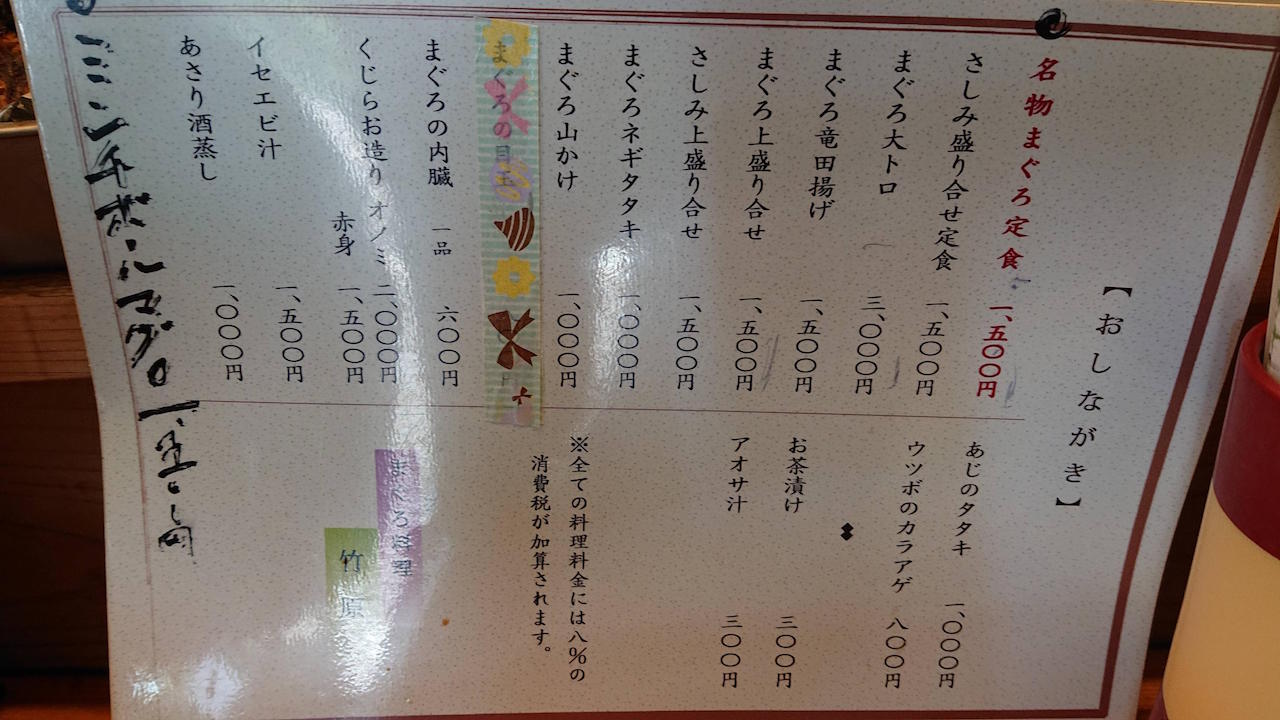 【おしながき】
名物まぐろ定食 一、五〇〇円
さしみ盛り合せ定食 一、五〇〇円
まぐろ大トロ 三、〇〇〇円
まぐろ竜田揚げ 一、五〇〇円
まぐろ上盛り合せ 一、五〇〇円
さしみ上盛り合せ 一、五〇〇円
まぐろネギタタキ 一、〇〇〇円
まぐろ山かけ 一、〇〇〇円
まぐろの目玉 円
まぐろの内臓 一品 六〇〇円
くじらお造り オノミ 二、〇〇〇円
赤身 一、五〇〇円
イセエビ汁 一、五〇〇円
あさり酒蒸し 一、〇〇〇円
ミンチボールマグロ 一、
円
あじのタタキ 一、〇〇〇円
ウツボのカラアゲ 八〇〇円
お茶漬け 三〇〇円
アオサ汁 三〇〇円
※全ての料理料金には八%の
消費税が加算されます。
まぐろ料理
竹原